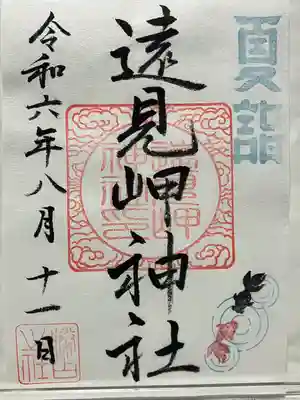 夏詣
遠見岬神社
令和六年八月十一日